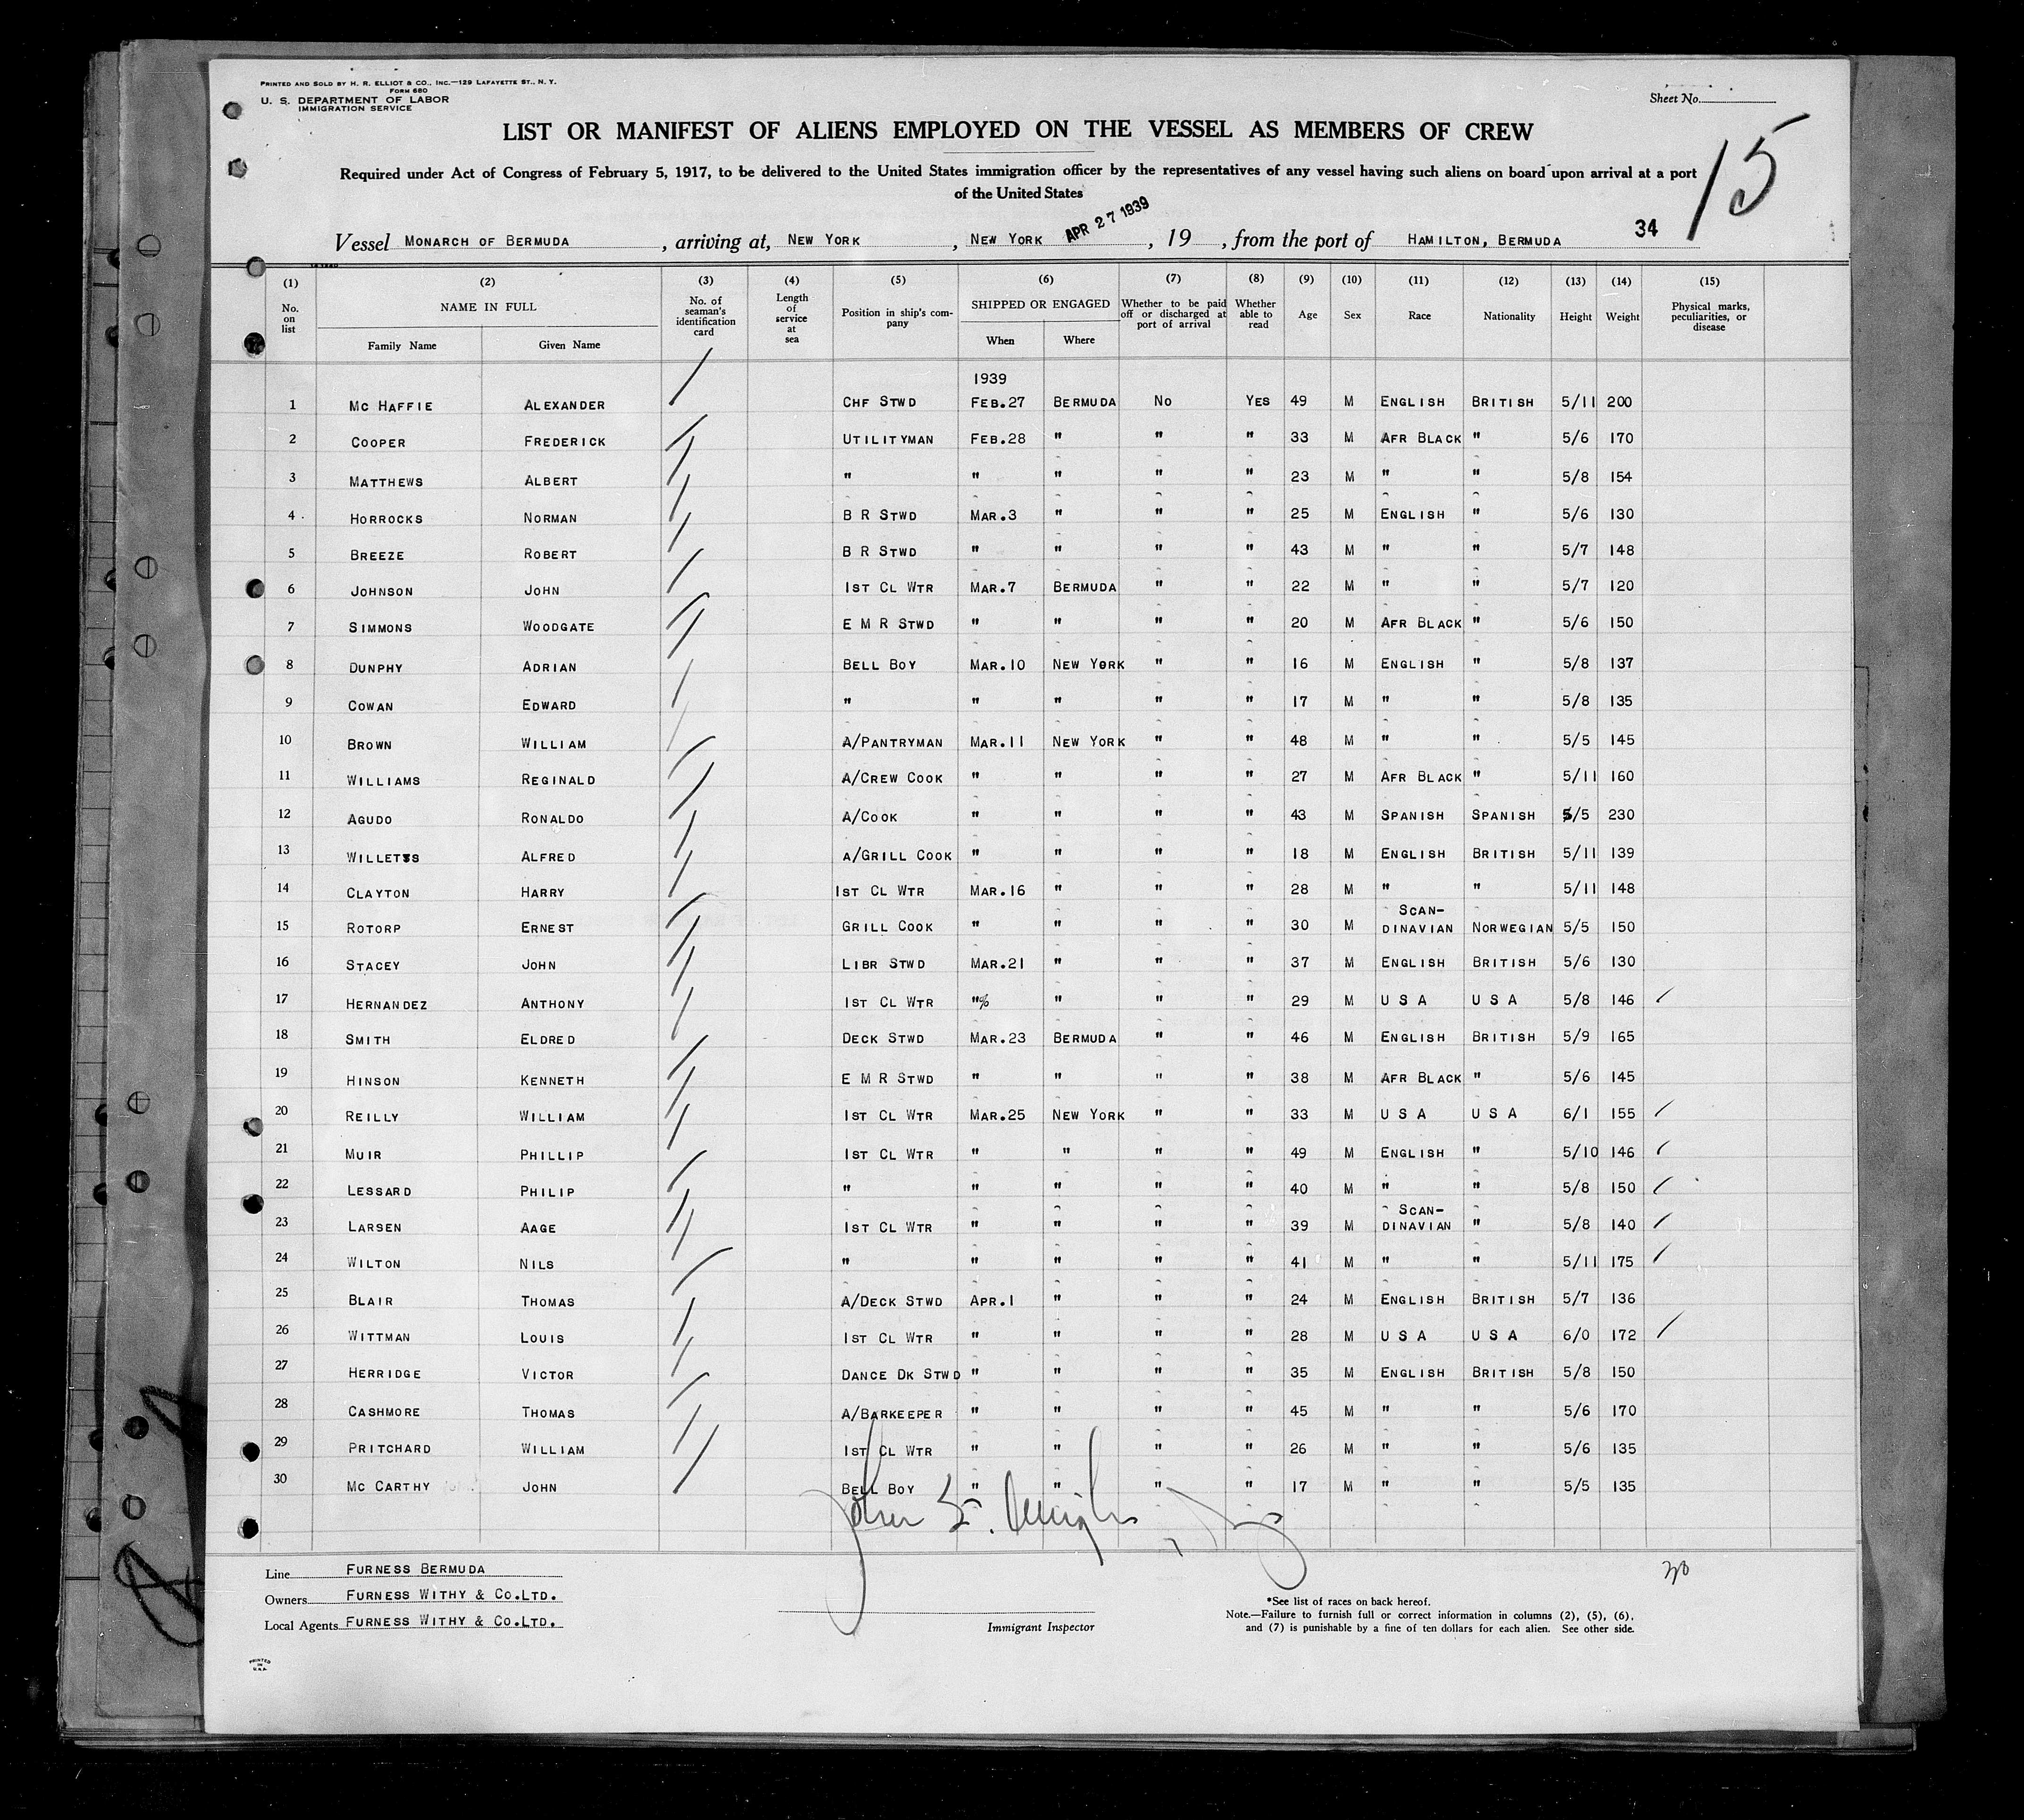 PRINTED AND SOLD BY H. R. ELLIOT & CO., INC.—129 LAFAYETTE ST., N. Y.
FORM 680
U. S. DEPARTMENT OF LABOR
IMMIGRATION SERVICE
Sheet No.
15
LIST OR MANIFEST OF ALIENS EMPLOYED ON THE VESSEL AS MEMBERS OF CREW
Required under Act of Congress of February 5, 1917, to be delivered to the United States immigration officer by the representatives of any vessel having such aliens on board upon arrival at a port
of the United States
Vessel MONARCH OF BERMUDA, arriving at, NEW YORK, NEW YORK APR 27 1939, 19, from the port of HAMILTON, BERMUDA 34
(1) (2) (3) (4) (5) (6) (7) (8) (9) (10) (11) (12) (13) (14) (15)
No. on list NAME IN FULL Family Name Given Name No. of seaman's identification card Length of service at sea Position in ship's company SHIPPED OR ENGAGED When Where Whether to be paid off or discharged at port of arrival Whether able to read Age Sex Race Nationality Height Weight Physical marks, peculiarities, or disease
1939
1 MC HAFFIE ALEXANDER CHF STWD FEB.27 BERMUDA NO YES 49 M ENGLISH BRITISH 5/11 200
2 COOPER FREDERICK UTILITYMAN FEB.28 " " " 33 M AFR BLACK " 5/6 170
3 MATTHEWS ALBERT " " " " " 23 M " " 5/8 154
4 HORROCKS NORMAN B R STWD MAR.3 " " " 25 M ENGLISH " 5/6 130
5 BREEZE ROBERT B R STWD " " " " 43 M " " 5/7 148
6 JOHNSON JOHN 1ST CL WTR MAR.7 BERMUDA " " 22 M " " 5/7 120
7 SIMMONS WOODGATE E M R STWD " " " " 20 M AFR BLACK " 5/6 150
8 DUNPHY ADRIAN BELL BOY MAR.10 NEW YORK " " 16 M ENGLISH " 5/8 137
9 COWAN EDWARD " " " " " 17 M " " 5/8 135
10 BROWN WILLIAM A/PANTRYMAN MAR.11 NEW YORK " " 48 M " " 5/5 145
11 WILLIAMS REGINALD A/CREW COOK " " " " 27 M AFR BLACK " 5/11 160
12 AGUDO RONALDO A/COOK " " " " 43 M SPANISH SPANISH 5/5 230
13 WILLETTS ALFRED A/GRILL COOK " " " " 18 M ENGLISH BRITISH 5/11 139
14 CLAYTON HARRY 1ST CL WTR MAR.16 " " " 28 M " " 5/11 148
15 ROTORP ERNEST GRILL COOK " " " " 30 M SCAN-DINAVIAN NORWEGIAN 5/5 150
16 STACEY JOHN LIBR STWD MAR.21 " " " 37 M ENGLISH BRITISH 5/6 130
17 HERNANDEZ ANTHONY 1ST CL WTR "% " " " 29 M U S A U S A 5/8 146
18 SMITH ELDRED DECK STWD MAR.23 BERMUDA " " 46 M ENGLISH BRITISH 5/9 165
19 HINSON KENNETH E M R STWD " " " " 38 M AFR BLACK " 5/6 145
20 REILLY WILLIAM 1ST CL WTR MAR.25 NEW YORK " " 33 M U S A U S A 6/1 155
21 MUIR PHILLIP 1ST CL WTR " " " " 49 M ENGLISH " 5/10 146
22 LESSARD PHILIP " " " " " 40 M " " 5/8 150
23 LARSEN AAGE 1ST CL WTR " " " " 39 M SCAN-DINAVIAN " 5/8 140
24 WILTON NILS " " " " " 41 M " " 5/11 175
25 BLAIR THOMAS A/DECK STWD APR.1 " " " 24 M ENGLISH BRITISH 5/7 136
26 WITTMAN LOUIS 1ST CL WTR " " " " 28 M U S A U S A 6/0 172
27 HERRIDGE VICTOR DANCE DK STWD " " " " 35 M ENGLISH BRITISH 5/8 150
28 CASHMORE THOMAS A/BARKEEPER " " " " 45 M " " 5/6 170
29 PRITCHARD WILLIAM 1ST CL WTR " " " " 26 M " " 5/6 135
30 MC CARTHY JOHN BELL BOY " " " " 17 M " " 5/5 135
Line FURNESS BERMUDA
Owners FURNESS WITHY & CO.LTD.
Local Agents FURNESS WITHY & CO.LTD.
Immigrant Inspector
*See list of races on back hereof.
Note.—Failure to furnish full or correct information in columns (2), (5), (6),
and (7) is punishable by a fine of ten dollars for each alien. See other side.
PRINTED
IN
U.S.A.